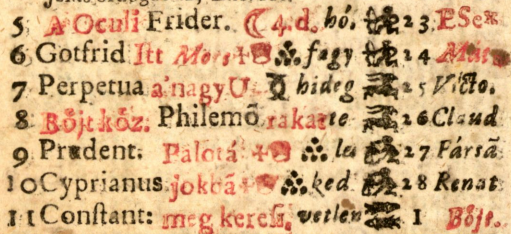 5 A Oculi Frider. ☾ 4. d. hó. 23 ESe*
6 Gotfrid Itt Mars + ⛬ fagy 24 Mat
7 Perpetua a' nagy hideg 25 Victo.
8 Bőjt köz. Philemõ rakatte 26 Claud
9 Prudent. Palotá + ⛬ les 27 Fársã
10 Cyprianus jokbã + ⛬ ked 28 Renat
11 Constant: meg keresi, vetlen 1 Bőjt.